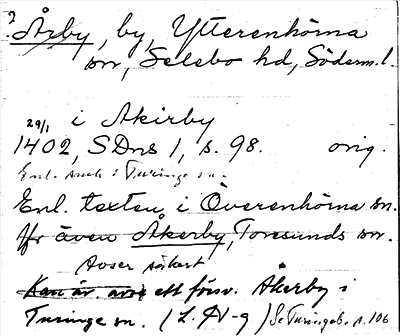 ? Årby, by, Ytterenhörna
sn, Selebo hd, Söderm. l.
29/1 i Akirby
1402, SDns 1, s. 98. orig.
Enl. anm: Turinge sn.
Enl. texten i Överenhörna sn.
Jfr även Åkerby, Toresunds sn.
Avser säkert
Kan äv. avse ett försv. Åkerby i
Turinge sn. (L. Hg) Se Turingeb. s. 106